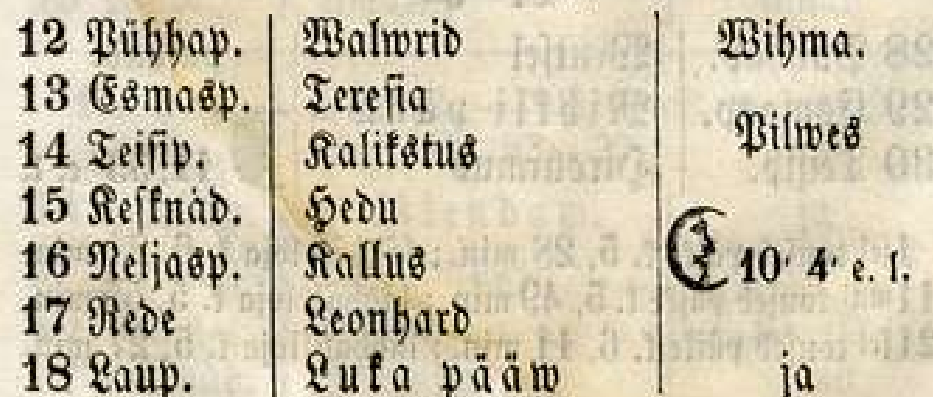 12 Pühhap. Walwrid Wihma.
13 Esmasp. Teresia
Pilwes
14 Teisip. Kalikstus
15 Kesknäd. Hedu
16 Neljasp. Kallus 10· 4· e. l.
17 Rede Leonhard
18 Laup. Luka pääw ja